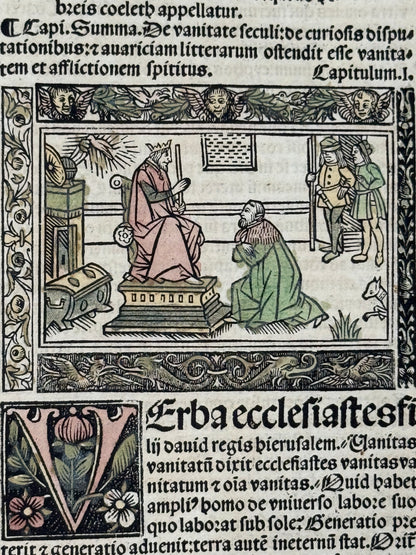 breis coeleth appellatur.
¶ Capi. Summa. De vanitate seculi: de curiosis dispu-
tationibus: ⁊ avariciam litterarum ostendit esse vanita-
tem et afflictionem spiritus. Capitulum. I.
VErba ecclesiastes fi
lij dauid regis hierusalem. Vanitas
vanitatū dixit ecclesiastes vanitas va
nitatum ⁊ oīa vanitas. Quid habet
ampliꝰ homo de vniuerso labore suo
quo laborat sub sole? Generatio pre
terit ⁊ generatio aduenit: terra autē ineternū stat. Orit